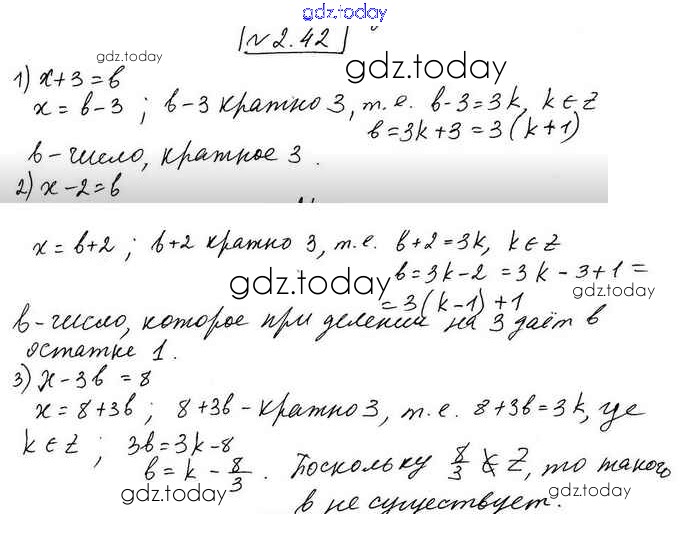 gdz.today
№2.42
gdz.today
gdz.today
1) x+3=в
x = в-3 ; в-3 кратно 3, т.е. в-3=3k, k∈Z
в=3k+3 =3(k+1)
в-число, кратное 3.
2) x-2=в
x = в+2 ; в+2 кратно 3, т.е. в+2=3k, k∈Z
в=3k-2 =3k-3+1=
gdz.today
gdz.today
=3(k-1)+1
в-число, которое при делении на 3 даёт в
остатке 1.
3) x-3в =8
x=8+3в ; 8+3в-кратно 3, т.е. 8+3в=3k, где
k∈Z ; 3в=3k-8
в=k-8/3. Поскольку 8/3 ∉ Z, то такого
gdz.today
gdz.today
в не существует.